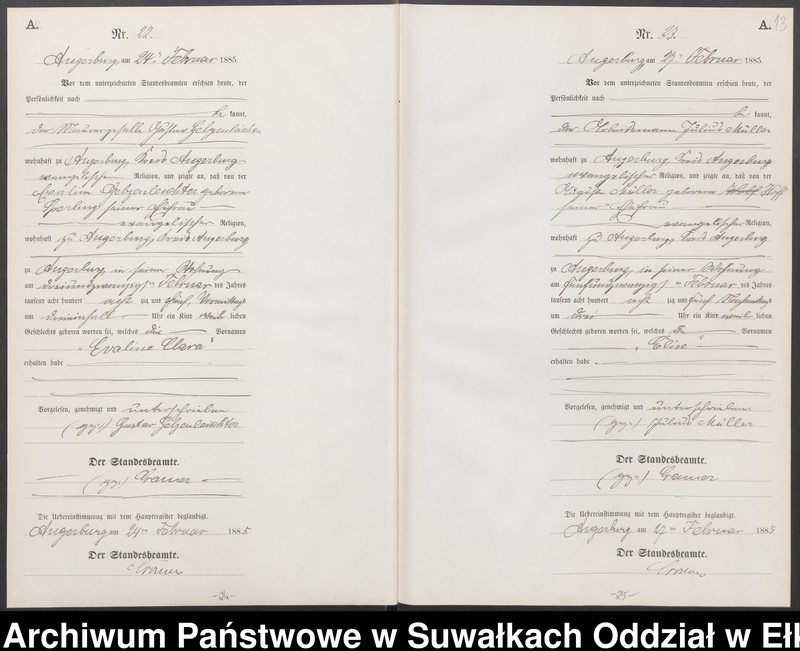 A.
Nr. 22.
Angerburg am 24ten Februar 1885.
Vor dem unterzeichneten Standesbeamten erschien heute, der
Persönlichkeit nach
be kannt,
der Maurergeselle Gustav
wohnhaft zu Angerburg, Kreis Angerburg
evangelischer Religion, und zeigte an, daß von der
geborenen
Sperling seiner Ehefrau
evangelischer Religion,
wohnhaft zu Angerburg, Kreis Angerburg
zu Angerburg in seiner Wohnung
am dreiundzwanzigsten Februar des Jahres
tausend acht hundert acht zig und fünf, Vormittags
um Uhr ein Kind weib lichen
Geschlechts geboren worden sei, welches die Vornamen
"Evaline Clara"
erhalten habe
Vorgelesen, genehmigt und unterschrieben
(gez.) Gustav
Der Standesbeamte.
(gez.) Cramer
Die Uebereinstimmung mit dem Hauptregister beglaubigt.
Angerburg am 24ten Februar 1885
Der Standesbeamte.
Cramer
A. 13
Nr. 23.
Angerburg am 27ten Februar 1885.
Vor dem unterzeichneten Standesbeamten erschien heute, der
Persönlichkeit nach
be kannt,
der Arbeitsmann Julius Müller
wohnhaft zu Angerburg, Kreis Angerburg
evangelischer Religion, und zeigte an, daß von der
Müller geborenen
seiner Ehefrau
evangelischer Religion,
wohnhaft zu Angerburg, Kreis Angerburg
zu Angerburg, in seiner Wohnung
am fünfundzwanzigsten Februar des Jahres
tausend acht hundert acht zig und fünf Nachmittags
um drei Uhr ein Kind weib lichen
Geschlechts geboren worden sei, welches den Vornamen
"Elise"
erhalten habe
Vorgelesen, genehmigt und unterschrieben
(gez.) Julius Müller
Der Standesbeamte.
(gez.) Cramer
Die Uebereinstimmung mit dem Hauptregister beglaubigt.
Angerburg am 27ten Februar 1885
Der Standesbeamte.
Cramer
Archiwum Państwowe w Suwałkach Oddział w Ełk